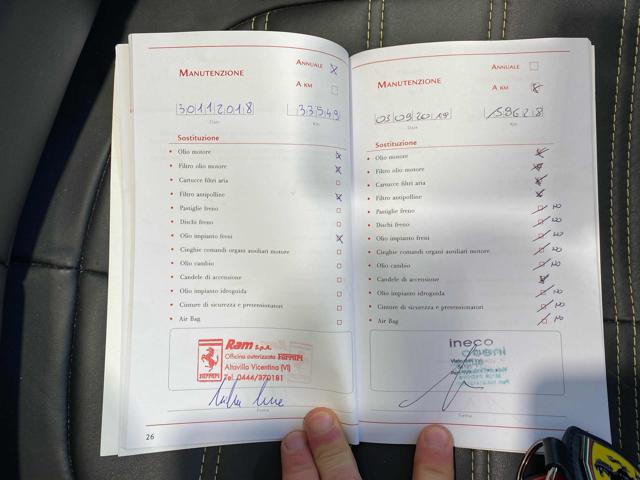 MANUTENZIONE
ANNUALE X
A KM
30112018
33549
Date
Km
Sostituzione
• Olio motore X
• Filtro olio motore X
• Cartucce filtri aria
• Filtro antipolline X
• Pastiglie freno
• Dischi freno
• Olio impianto freni X
• Cinghie comandi organi ausiliari motore
• Olio cambio
• Candele di accensione
• Olio impianto idroguida
• Cinture di sicurezza e pretensionatori
• Air Bag
Ram S.p.A.
Officina autorizzata Ferrari
Altavilla Vicentina (VI)
Tel. 0444/370181
Ferrari
Firma
26
MANUTENZIONE
ANNUALE
A KM X
03092019
Date
Km
Sostituzione
• Olio motore X
• Filtro olio motore X
• Cartucce filtri aria X
• Filtro antipolline X
• Pastiglie freno NO
• Dischi freno NO
• Olio impianto freni NO
• Cinghie comandi organi ausiliari motore NO
• Olio cambio NO
• Candele di accensione NO
• Olio impianto idroguida NO
• Cinture di sicurezza e pretensionatori NO
• Air Bag NO
ineco
Firma